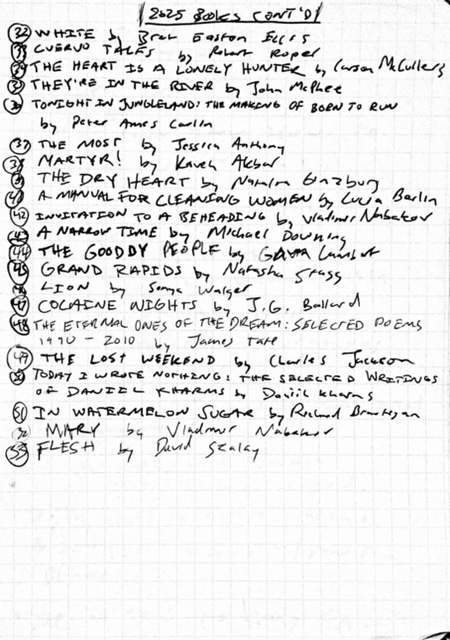 2025 BOOKS CONT'D
32 WHITE by Bret Easton Ellis
33 CUERVO TALES by Robert Roper
34 THE HEART IS A LONELY HUNTER by Carson McCullers
35 THEY'RE IN THE RIVER by John McPhee
36 TONIGHT IN JUNGLELAND: THE MAKING OF BORN TO RUN
by Peter Ames Carlin
37 THE MOST by Jessica Anthony
38 MARTYR! by Kaveh Akbar
39 THE DRY HEART by Natalia Ginzburg
40 A MANUAL FOR CLEANING WOMEN by Lucia Berlin
42 INVITATION TO A BEHEADING by Vladimir Nabokov
43 A NARROW TIME by Michael Downing
44 THE GOODDY PEOPLE by
45 GRAND RAPIDS by Natasha Stagg
46 LION by Sonya Walger
47 COCAINE NIGHTS by J.G. Ballard
48 THE ETERNAL ONES OF THE DREAM: SELECTED POEMS
1990-2010 by James Tate
49 THE LOST WEEKEND by Charles Jackson
50 TODAY I WROTE NOTHING: THE SELECTED WRITINGS
OF DANIIL KHARMS by Daniil Kharms
51 IN WATERMELON SUGAR by Richard Brautigan
52 MARY by Vladimir Nabokov
53 FLESH by David Szalay